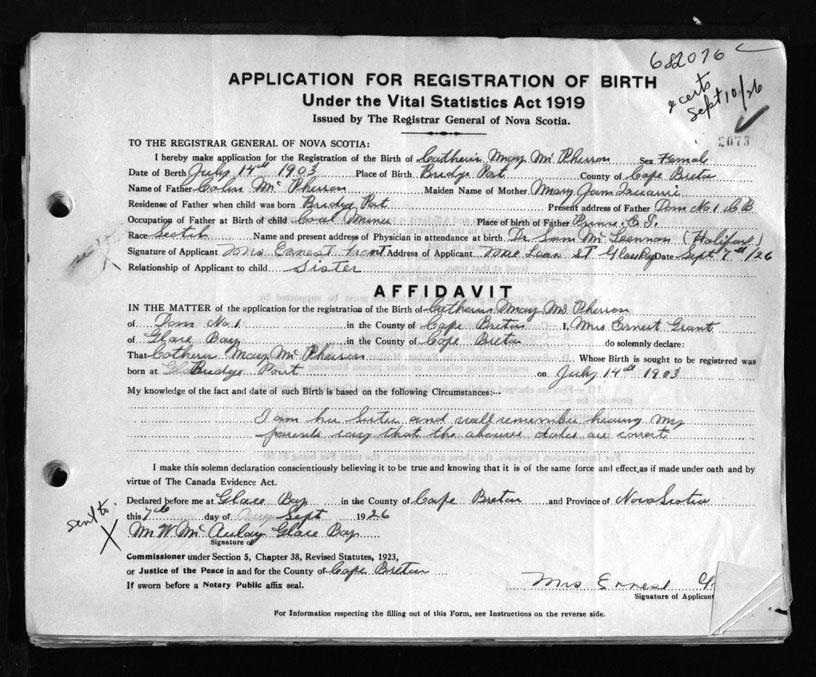 682076
2 certs
Sept 10/26
APPLICATION FOR REGISTRATION OF BIRTH
Under the Vital Statistics Act 1919
Issued by The Registrar General of Nova Scotia.
2073
TO THE REGISTRAR GENERAL OF NOVA SCOTIA:
I hereby make application for the Registration of the Birth of Catherin May Mc Pherson Sex Female
Date of Birth July 14th 1903 Place of Birth Bridge Port County of Cape Breton
Name of Father Colin Mc Pherson Maiden Name of Mother Mary Jane
Residense of Father when child was born Bridge Port Present address of Father Dom No 1 C B
Occupation of Father at Birth of child Coal Miner Place of birth of Father Prince E. I.
Race Scotch Name and present address of Physician in attendance at birth Dr Sam Mc Lennon (Halifax)
Signature of Applicant Mrs Ernest Grant Address of Applicant McLean St Glace Bay Date Sept 7th/26
Relationship of Applicant to child Sister
AFFIDAVIT
IN THE MATTER of the application for the registration of the Birth of Catherin May Mc Pherson
of Dom No. 1 in the County of Cape Breton I, Mrs Ernest Grant
of Glace Bay in the County of Cape Breton do solemnly declare:
That Catherin May Mc Pherson Whose Birth is sought to be registered was
born at Bridge Port on July 14th 1903
My knowledge of the fact and date of such Birth is based on the following Circumstances:—
I am her Sister and well remember hearing my
parents say that the above dates are correct
I make this solemn declaration conscientiously believing it to be true and knowing that it is of the same force and effect, as if made under oath and by
virtue of The Canada Evidence Act.
Declared before me at Glace Bay in the County of Cape Breton and Province of Nova Scotia
this 7th day of Sept 1926
sent to
X
Mc Aulay Glace Bay
Signature of
Commissioner under Section 5, Chapter 38, Revised Statutes, 1923,
or Justice of the Peace in and for the County of Cape Breton
If sworn before a Notary Public affix seal.
Mrs Ernest G
Signature of Applicant
For Information respecting the filling out of this Form, see Instructions on the reverse side.